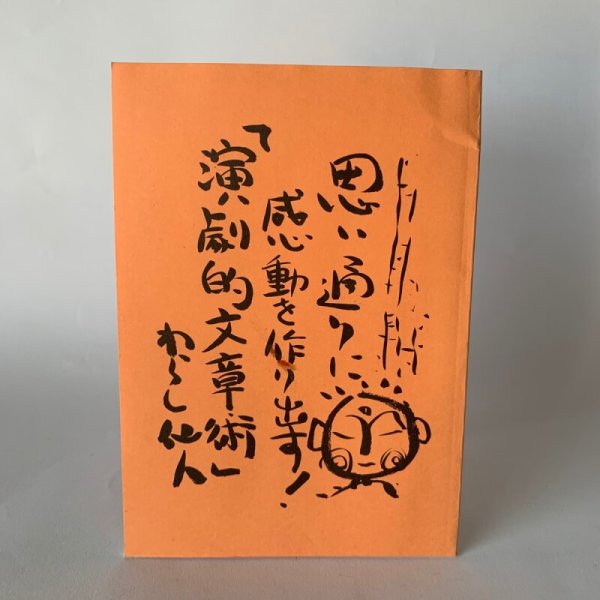 思い通りに
感動を作り出す!
「演劇的文章術」
わらし仙人